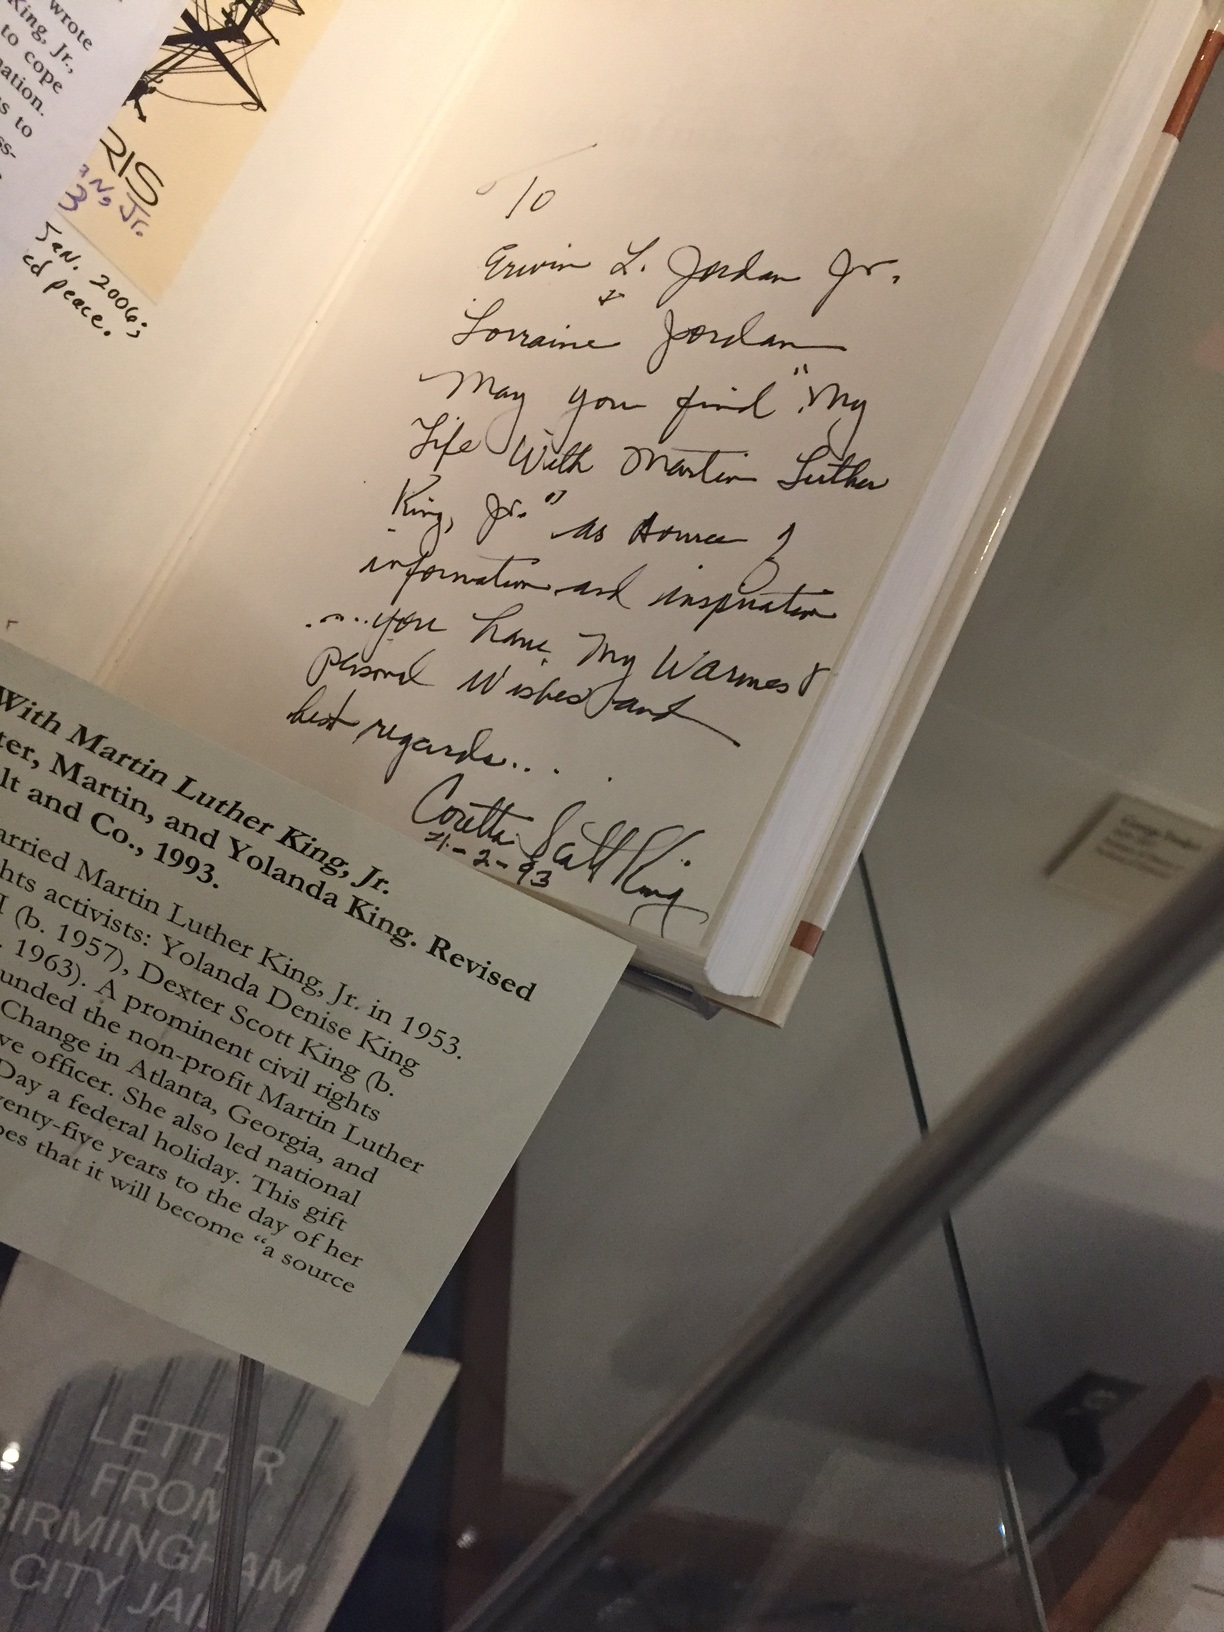 wrote
King, Jr.,
to cope
nation.
s to
ss-
RIS
AN, Jr.
3
Jan. 2006;
ed peace.
To
Ervin L. Jordan Jr.
+
Lorraine Jordan
May you find "My
Life With Martin Luther
King, Jr." as source of
information and inspiration
....you have my warmest
personal wishes and
best regards....
Coretta Scott King
4-2-93
With Martin Luther King, Jr.
ter, Martin, and Yolanda King. Revised
lt and Co., 1993.
arried Martin Luther King, Jr. in 1953.
hts activists: Yolanda Denise King
I (b. 1957), Dexter Scott King (b.
. 1963). A prominent civil rights
unded the non-profit Martin Luther
Change in Atlanta, Georgia, and
ve officer. She also led national
Day a federal holiday. This gift
venty-five years to the day of her
pes that it will become "a source
LETTER
FROM
BIRMINGHAM
CITY JAIL